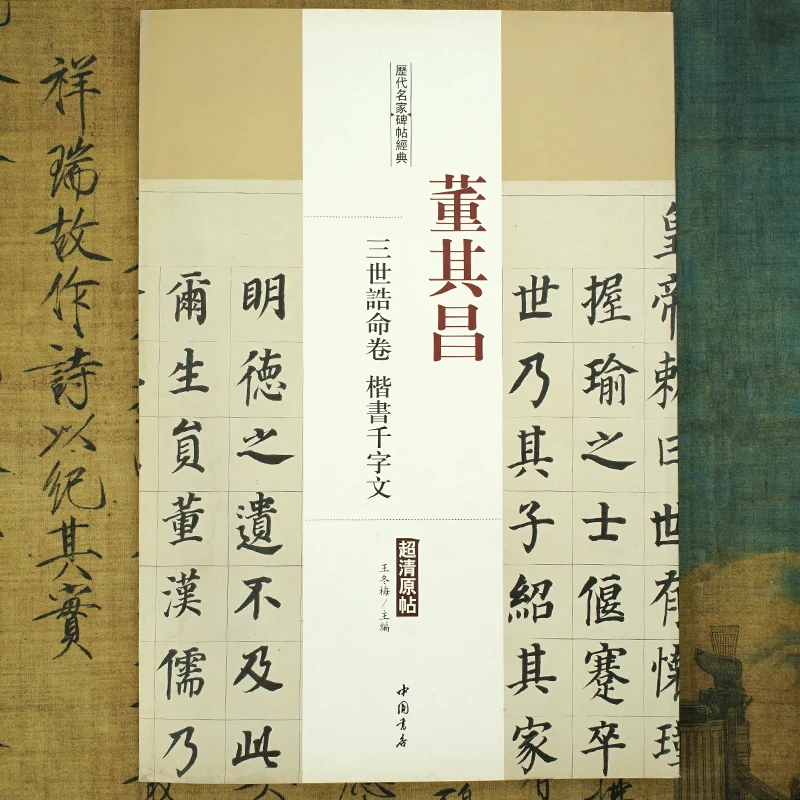 歷代名家碑帖經典
董其昌
三世誥命卷 楷書千字文
超清原帖
王冬梅/主編
中国书店
皇帝敕曰世有懷瑾
握瑜之士偃蹇卒
世乃其子紹其家
明德之遺不及此
爾生員董漢儒乃
祥瑞故作詩以紀其實